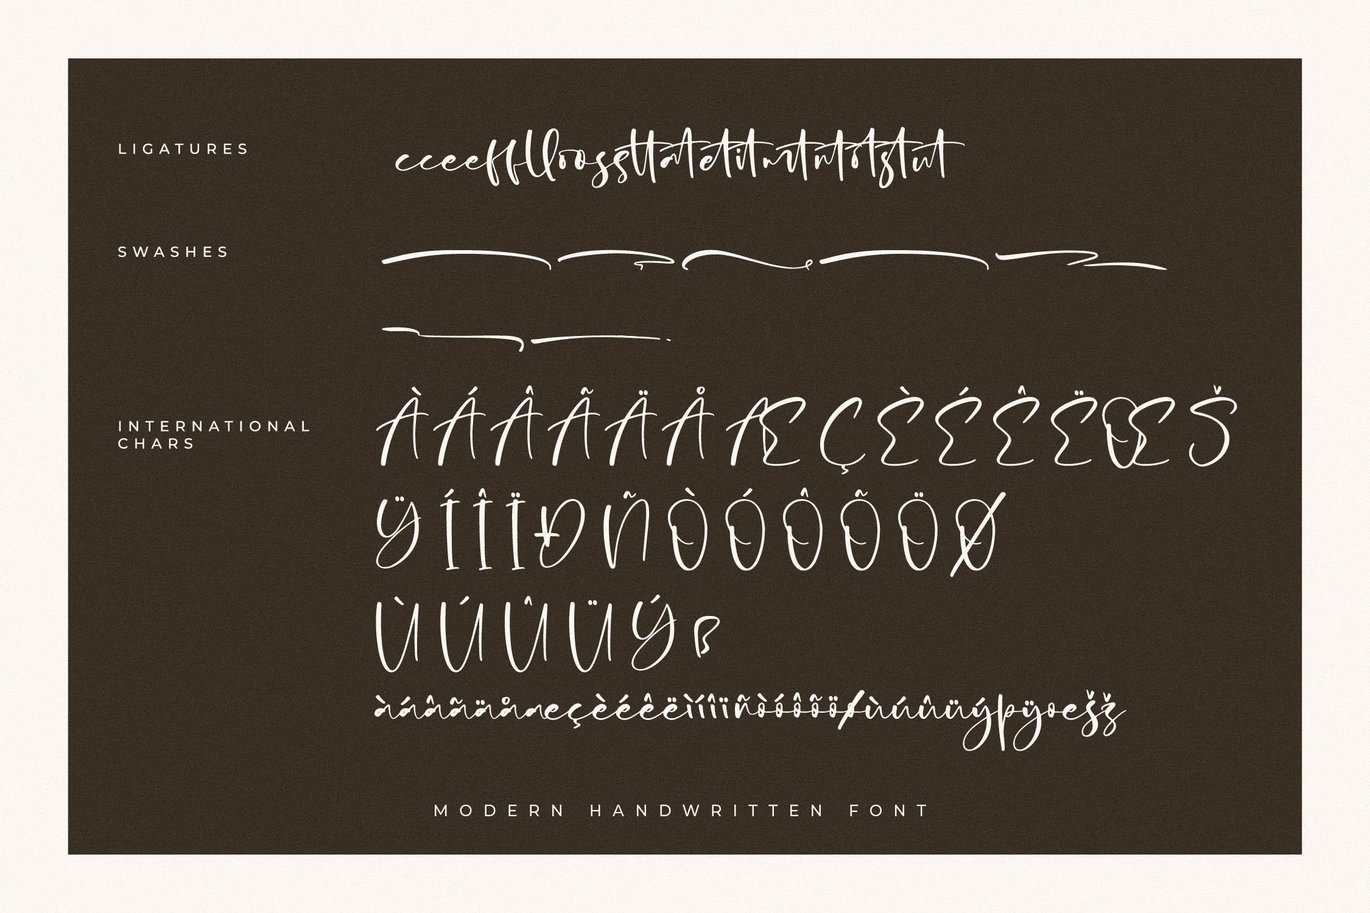 LIGATURES
cceefflloossttatetitrtntotstut
SWASHES
INTERNATIONAL
CHARS
ÀÁÂÃÄÅÆÇÈÉÊËŒŠ
ŸÍÎÏÐÑÒÓÔÕÖØ
ÙÚÛÜÝß
àáâãäåæçèéêëìíîïñòóôõöøùúûüýþÿœšž
MODERN HANDWRITTEN FONT